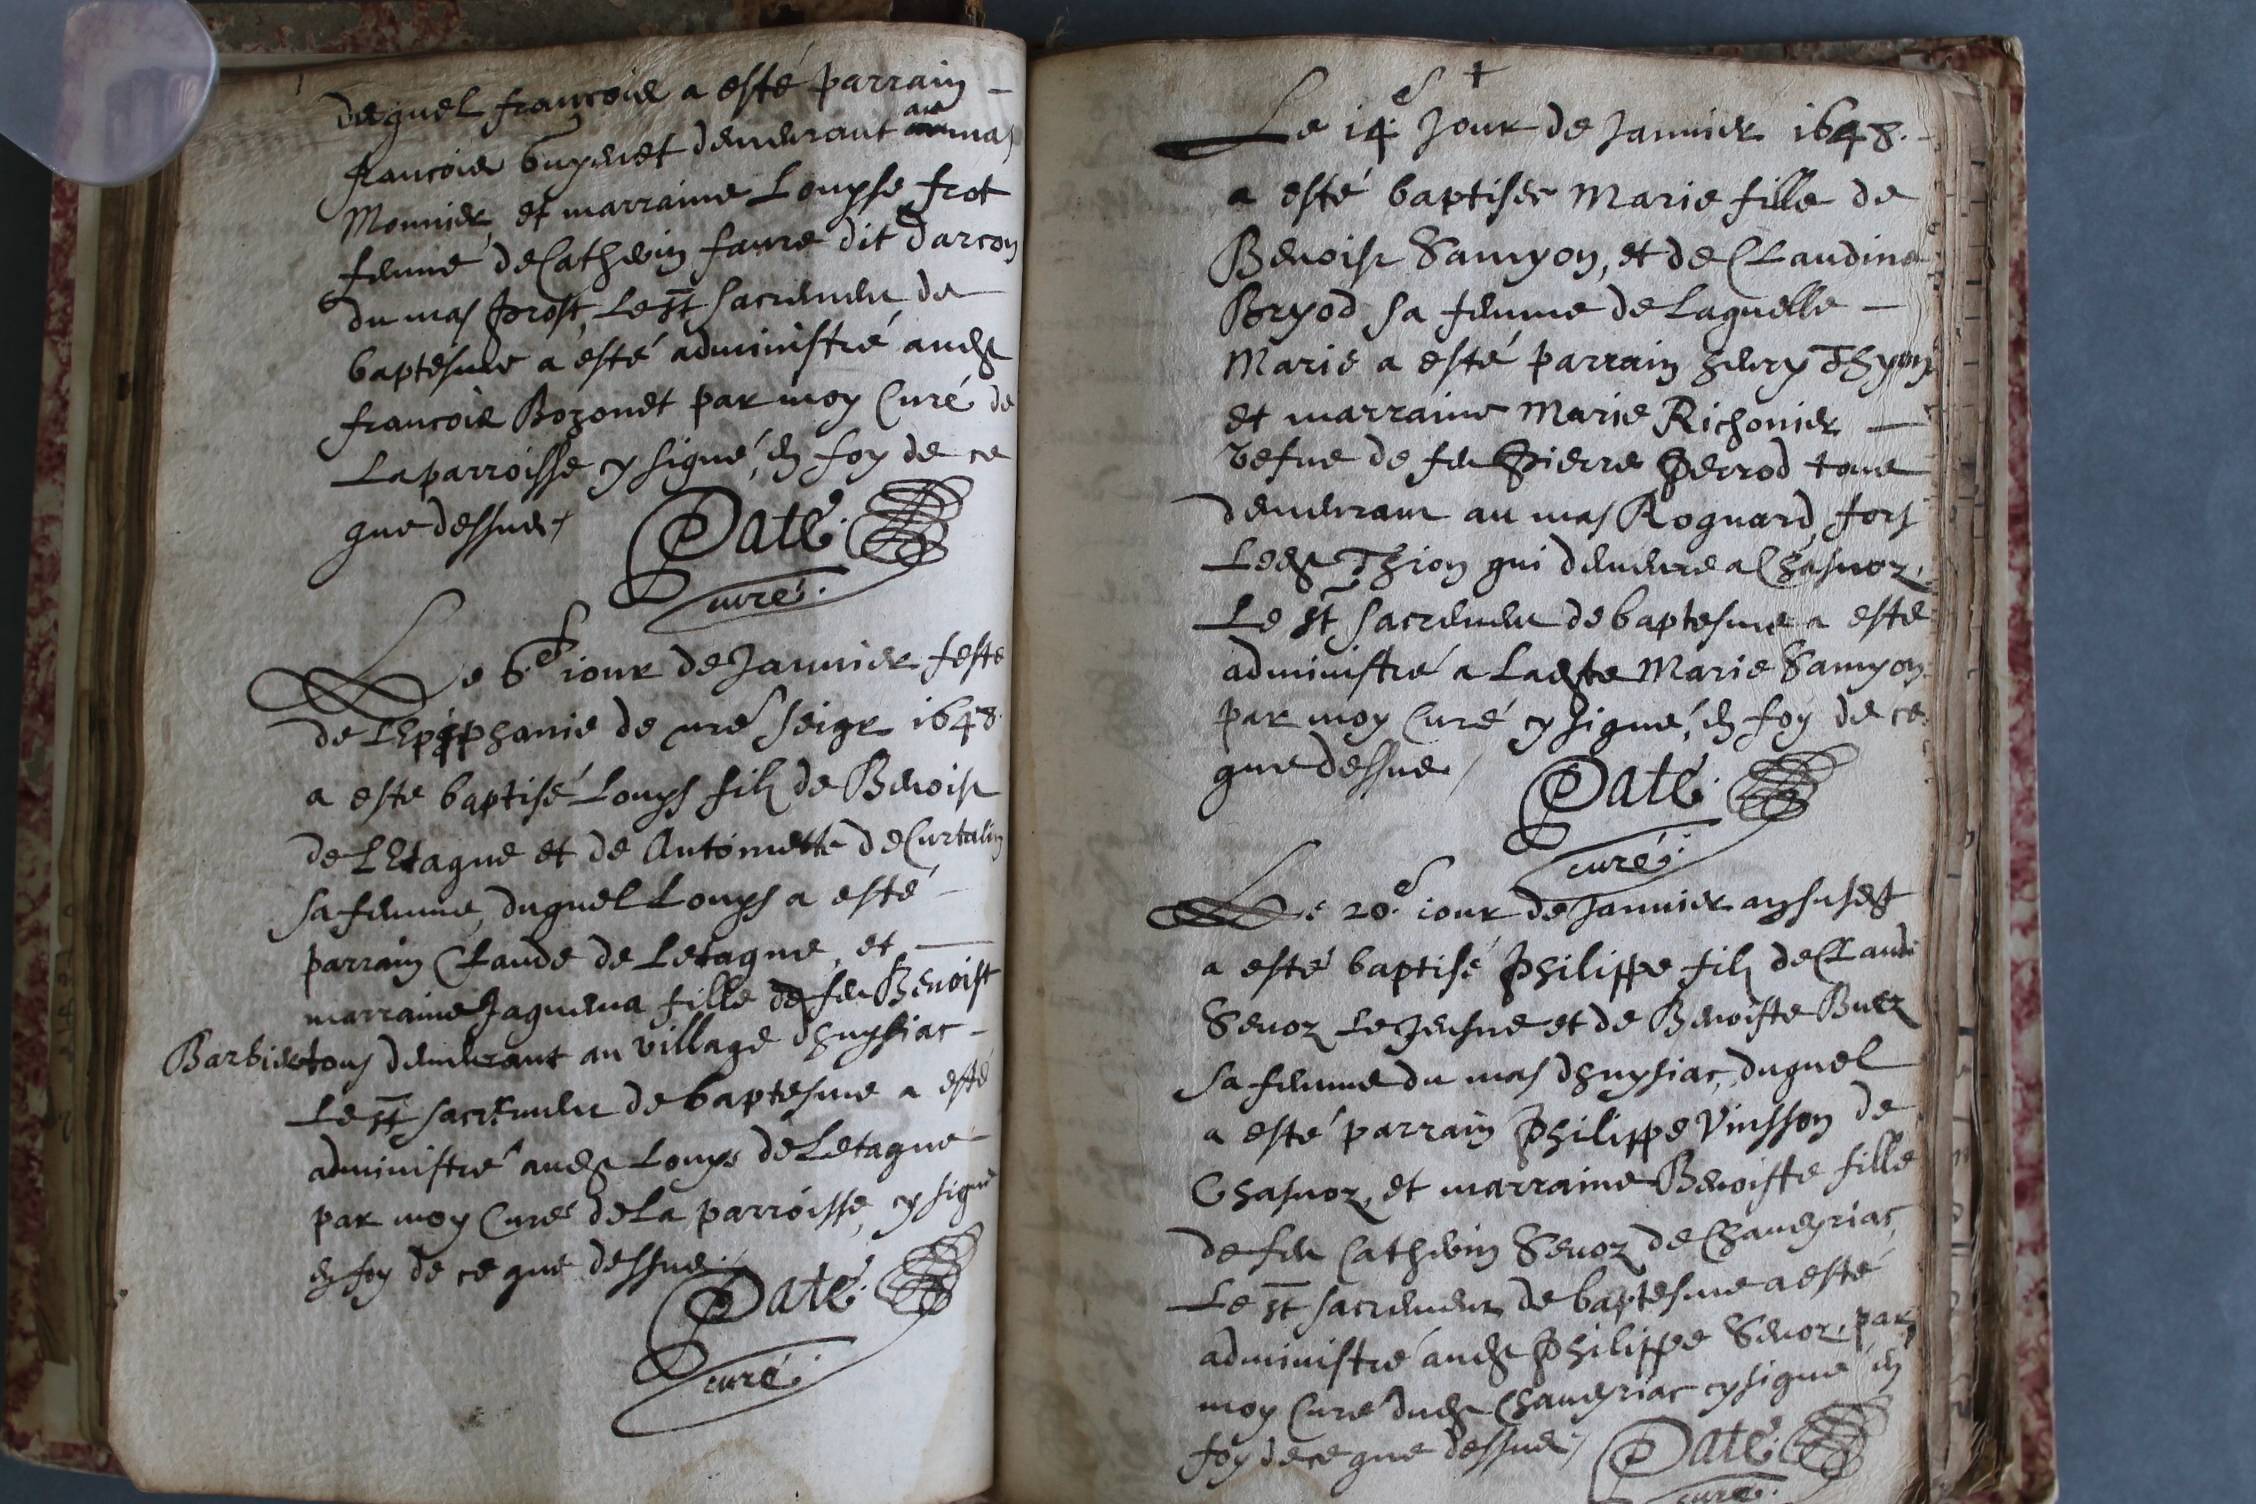 duquel francois a esté parrain
francois Guyenet demeurant au mas
Monnier, et marraine Louyse frot
femme de Cathelin faure dit darcon
du mas frost, Le st sacrement de
baptesme a esté administré audit
francois Bozonet par moy Curé de
La parroisse cy signé, en foy de ce
que dessus
Daté
curé
Le 6e iour de Januier feste
de LEpiphanie de nre seigr 1648
a este baptisé Louys filz de Benoist
de LEtagne et de Antoinette de Curtalin
sa femme, duquel Louys a esté
parrain Claude de Letagne, et
marraine Jaquema fille de feu Benoist
Barbier tous demeurant au village dhuysiac
Le st sacrement de baptesme a esté
administré audit Louys de Letagne
par moy Curé de La parroisse, cy signé
en foy de ce que dessus
Daté
curé
Le 14e Jour de Januier 1648.
a esté baptisée Marie fille de
Benoist Samyon, et de Claudine
Bryod sa femme de Laquelle
Marie a esté parrain henry Thyon
et marraine Marie Richonier
vefue de feu Pierre Perrod tous
demeurant au mas Roquard, fors
Ledit Thion qui demeure a Chasnoz,
Le st sacrement de baptesme a este
administré a Ladite Marie Samyon
par moy Curé cy signé, en foy de ce
que dessus
Daté
curé
Le 20e iour de Januier an susdit
a esté baptisé Philippe filz de Claude
Seuoz Le Jeusne et de Benoiste Buez
sa femme du mas dhuysiac, duquel
a esté parrain Philippe Vinsson de
Chasnoz, et marraine Benoiste fille
de feu Cathelin Seuoz de Chaueyriac,
Le st sacrement de baptesme a esté
administré audit Philippe Seuoz, par
moy Curé dudit Chaueyriac cy signé en
foy de ce que dessus
Daté
curé